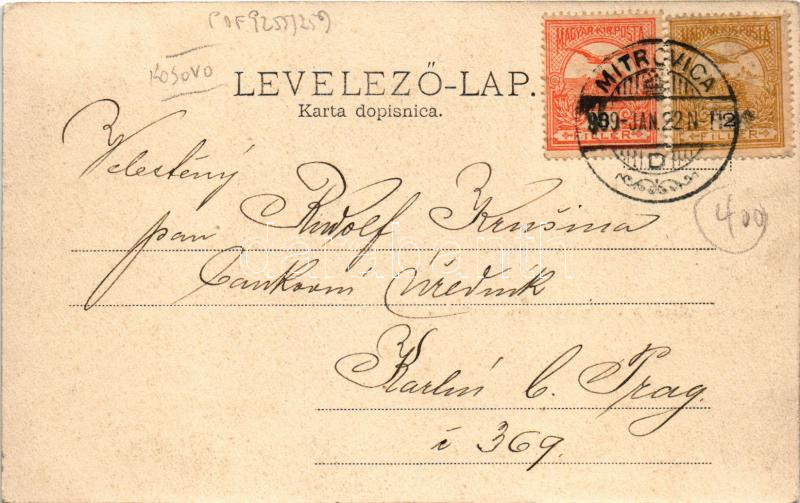 KOSOVO
LEVELEZŐ-LAP.
Karta dopisnica.
MAGYAR KIR. POSTA
MAGYAR KIR. POSTA
FILLÉR
FILLÉR
MITROVICA
909-JAN.22 N
D
400
Velectěný
pan Rudolf Krušina
bankovní Úředník
Karlín b. Prag.
č 369.
darabanth